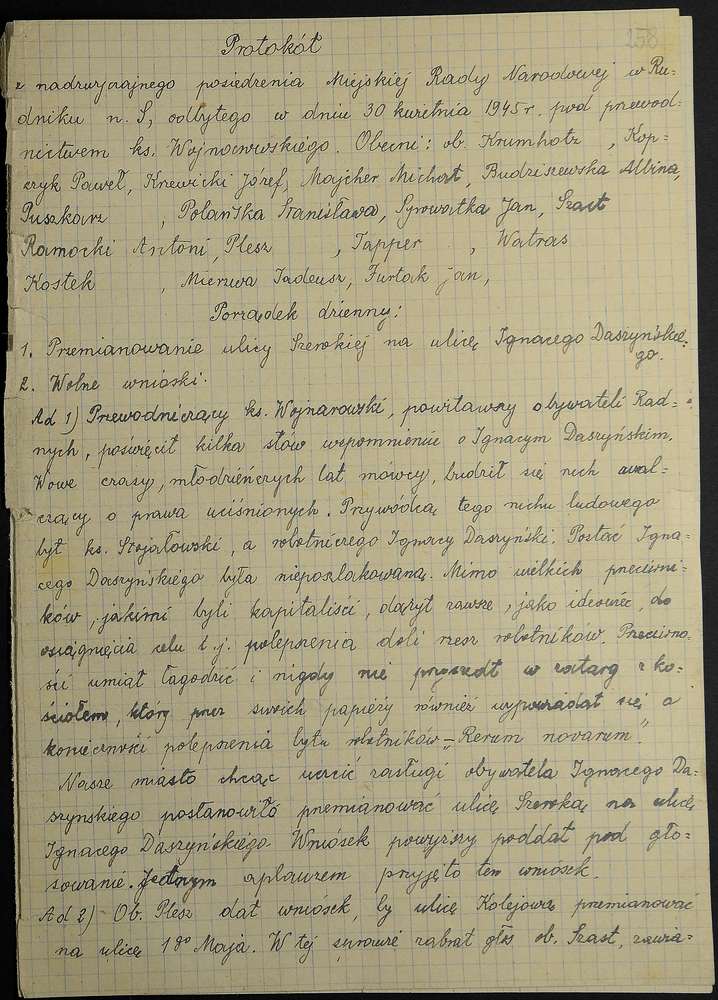 258
Protokół
z nadzwyczajnego posiedzenia Miejskiej Rady Narodowej w Ru=
dniku n. S, odbytego w dniu 30 kwietnia 1945 r. pod przewod=
nictwem ks. Wojnarowskiego. Obecni: ob. Krumholz , Kop=
czyk Paweł, Knewicki Józef, Majcher Michał, Budziszewska Albina,
Puszkarz , Polańska Stanisława, Syrowatka Jan, Szast
Ramocki Antoni, Plesz , Tapper , Watras
Kostek , Mierzwa Tadeusz, Furtak Jan,
Porządek dzienny:
1. Przemianowanie ulicy Szerokiej na ulicę Ignacego Daszyńskie=
go.
2. Wolne wnioski.
Ad 1) Przewodniczący ks. Wojnarowski, powitawszy obywateli Rad=
nych, poświęcił kilka słów wspomnienie o Ignacym Daszyńskim.
Wowe czasy, młodzieńczych lat mówcy, budził się ruch wal=
czący o prawa uciśnionych. Przywódcą tego ruchu ludowego
był ks. Stojałowski, a robotniczego Ignacy Daszyński. Postać Igna=
cego Daszyńskiego była nieposzlakowaną. Mimo wielkich przeciwni=
ków, jakimi byli kapitaliści, dążył zawsze, jako ideowiec, do
osiągnięcia celu t.j. polepszenia doli rzesz robotników. Przeciwno=
ści umiał łagodzić i nigdy nie poszedł w zatarg z ko=
ściołem, który przez swoich papieży również wypowiadał się o
konieczności polepszenia bytu robotników – „Rerum novarum”.
Nasze miasto chcąc uczcić zasługi obywatela Ignacego Da=
szynskiego postanowiło przemianować ulicę Szeroką na ulicę
Ignacego Daszyńskiego. Wniosek powyższy poddał pod gło=
sowanie. Jednym aplauzem przyjęto ten wniosek.
Ad 2) Ob. Plesz dał wniosek, by ulicę Kolejową przemianować
na ulicę 1go Maja. W tej sprawie zabrał głos ob. Szast, zawia=